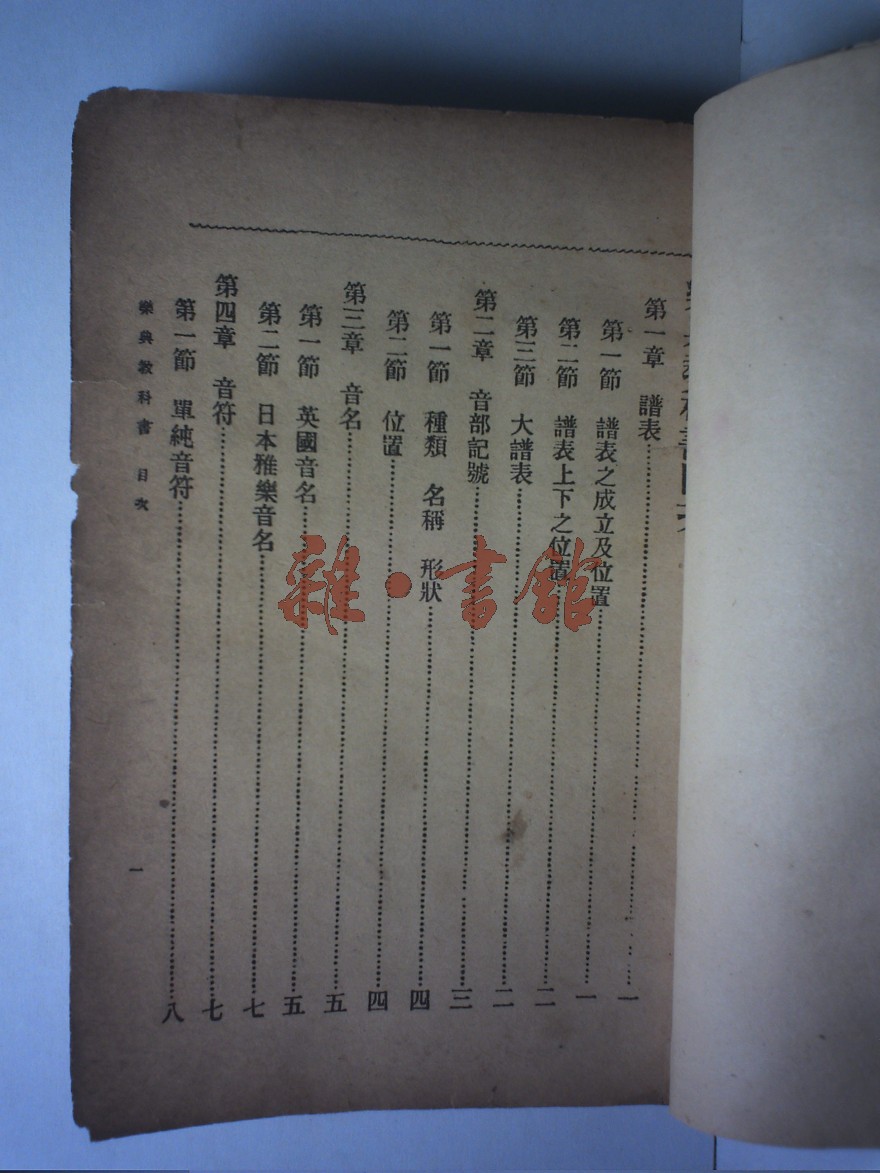 第一章 譜表……一
第一節 譜表之成立及位置……一
第二節 譜表上下之位置……二
第三節 大譜表……二
第二章 音部記號……三
第一節 種類 名稱 形狀……四
第二節 位置……四
第三章 音名……五
第一節 英國音名……五
第二節 日本雅樂音名……七
第四章 音符……七
第一節 單純音符……八
樂典教科書 目次 一
雜·書館